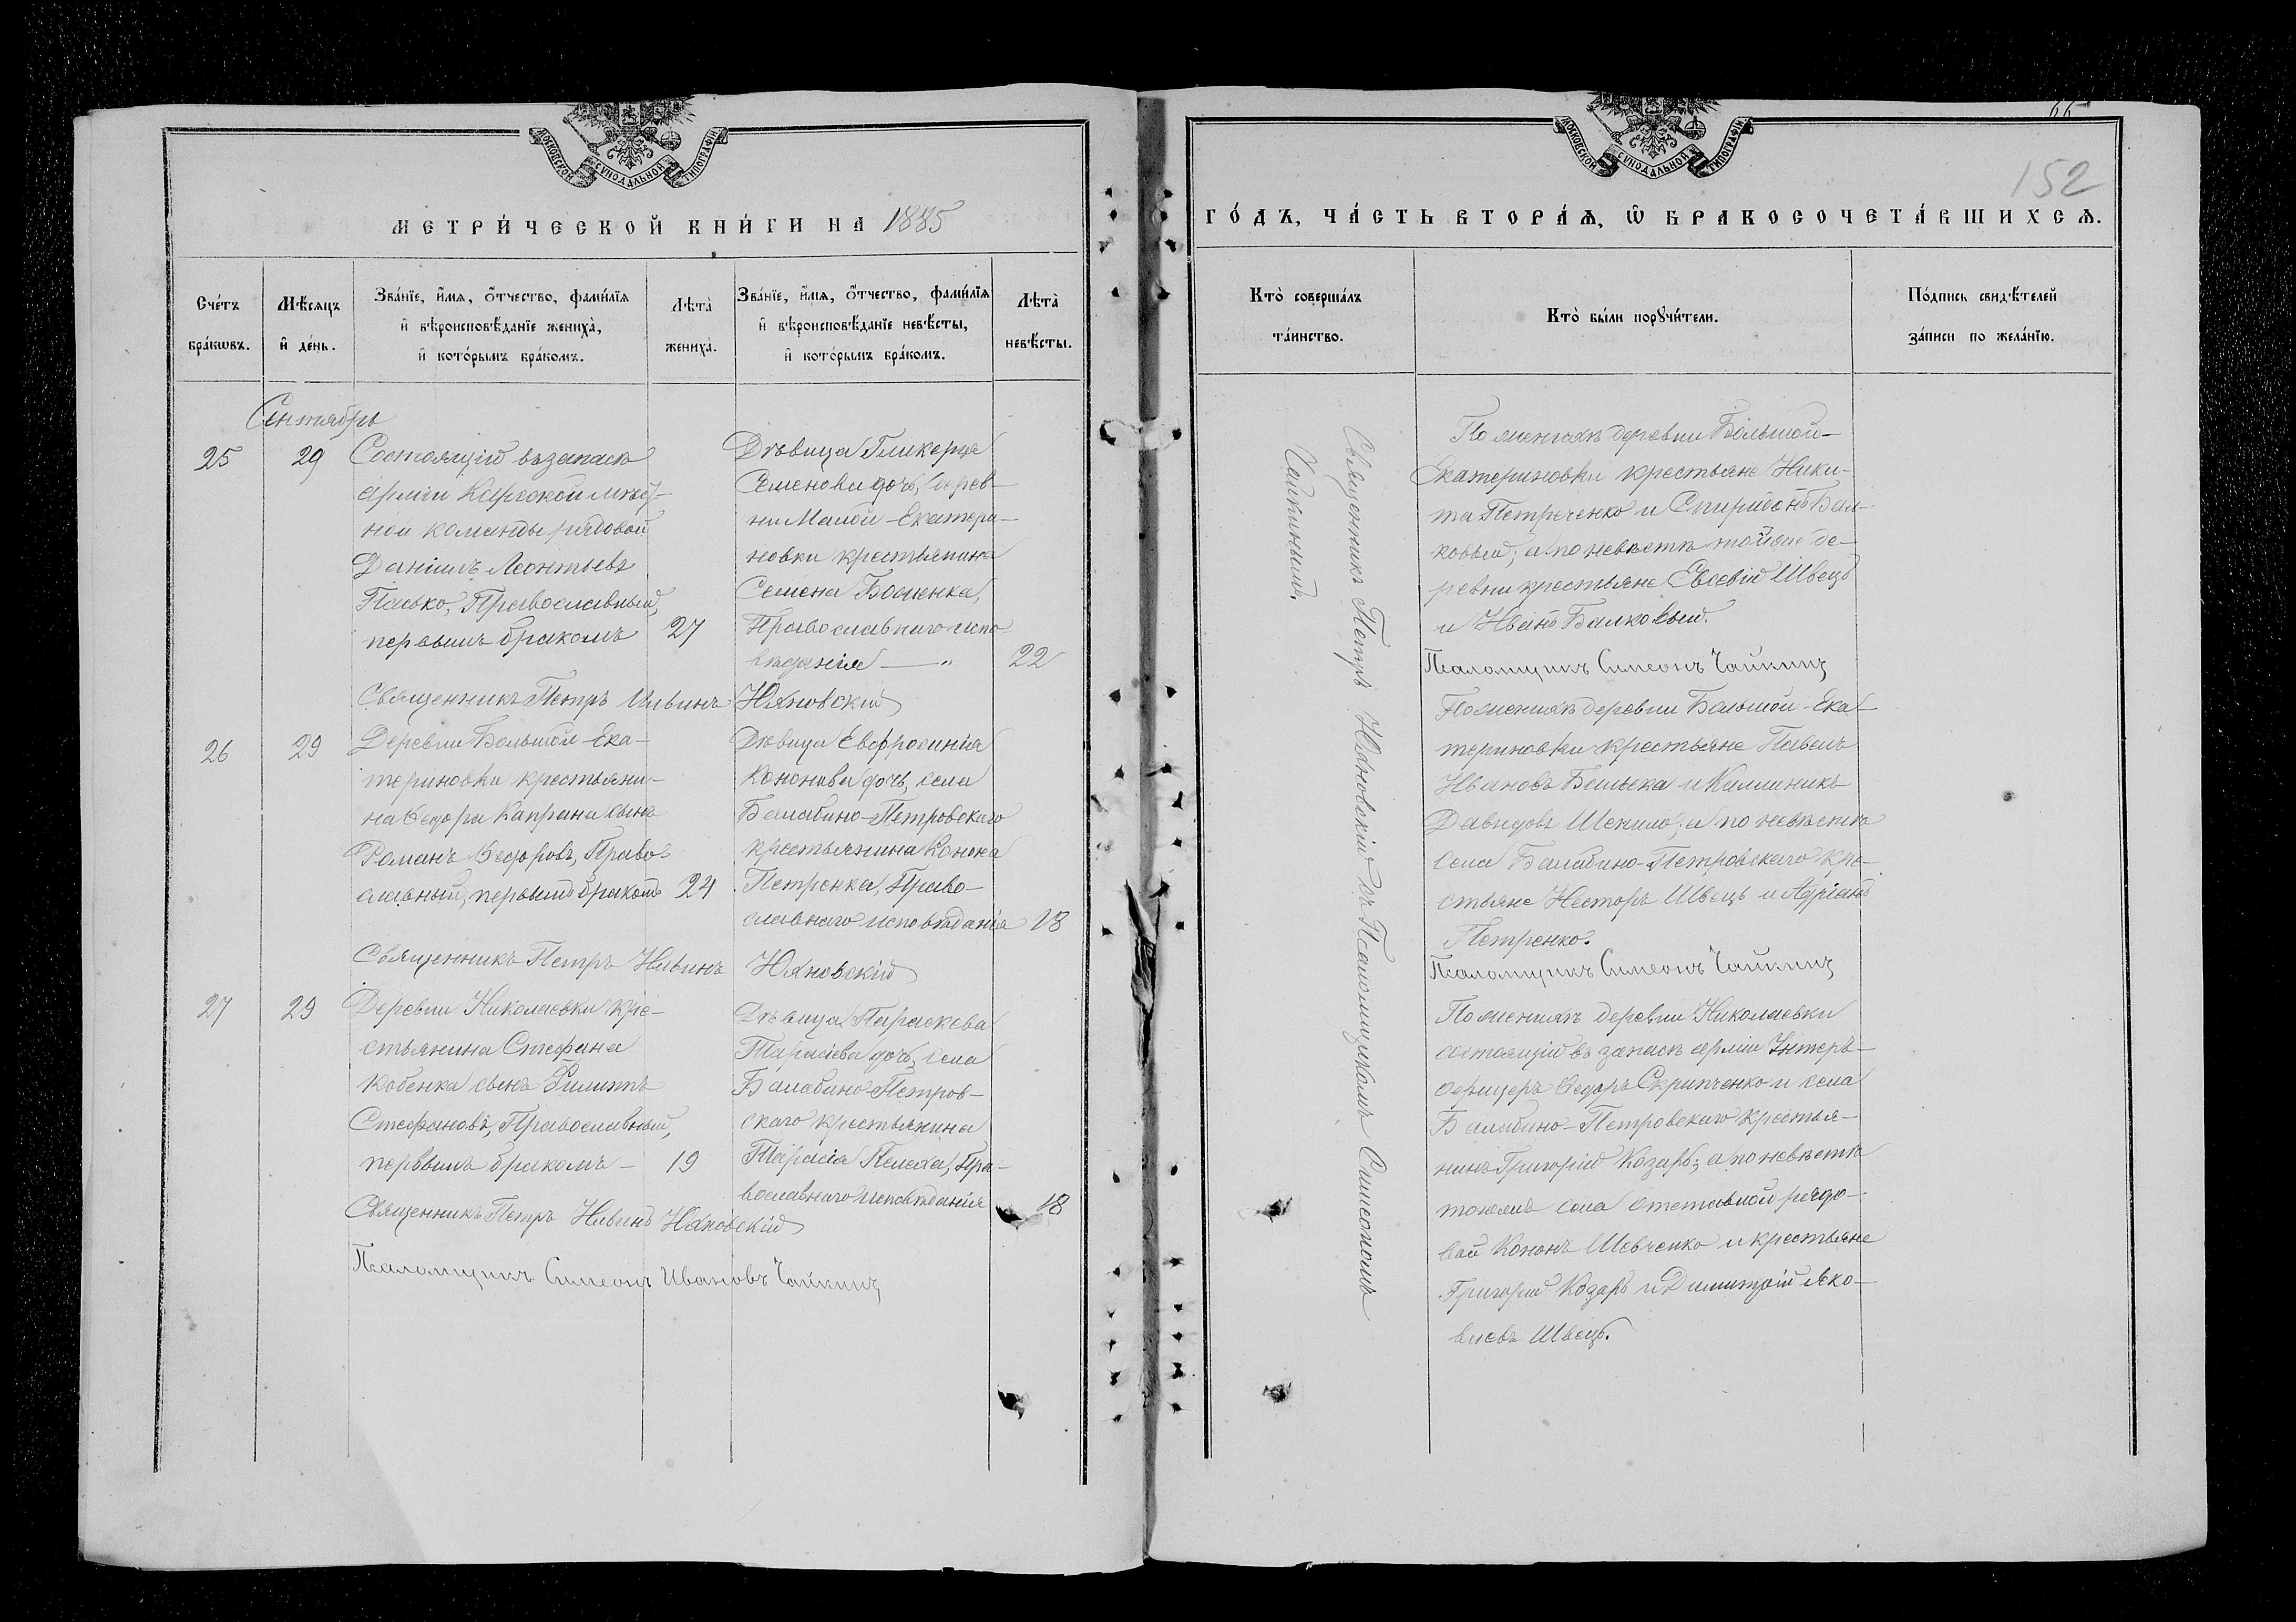 МОСКОВСКОЙ СѴНОДАЛЬНОЙ ТИПОГРАФІИ
МЕТРИ́ЧЕСКОЙ КНИ́ГИ НА 1885
Сче́тъ бра́кѡвъ.
Мѣ́сяцъ и҆ де́нь.
Зва́нїе, и҆́мѧ, ѻ҆́тчество, фами́лїѧ
и҆ вѣроисповѣ́данїе жениха̀,
и҆ кото́рымъ бра́комъ.
Лѣта̀ жениха̀.
Зва́нїе, и҆́мѧ, ѻ҆́тчество, фами́лїѧ
и҆ вѣроисповѣ́данїе невѣ́сты,
и҆ кото́рымъ бра́комъ.
Лѣта̀ невѣ́сты.
Сентябрь
25
29
Состоящій въ запасѣ
арміи Карсской мѣст-
ной команды рядовой
Даніилъ Леонтьевъ
Пасько, Православный,
первымъ бракомъ
27
Дѣвица Гликерія
Семенова дочь, дерев-
ни Малой-Екатери-
новки крестьянина
Семена
Православнаго испо-
вѣданія — „
22
Священникъ Петръ Ильинъ Юхновскій
26
29
Деревни Большой-Ека-
териновки крестьяни-
на Ѳедора Капрана сынъ
Романъ Ѳедоровъ, Право-
славный, первымъ бракомъ
24
Дѣвица Евфросинія
Кононова дочь, села
Балабино-Петровскаго
крестьянина Конона
Петренка, Право-
славнаго исповѣданія
18
Священникъ Петръ Ильинъ Юхновскій
27
29
Деревни Николаевки кре-
стьянина Стефана
Кобенка сынъ Филиппъ
Стефановъ, Православный,
первымъ бракомъ —
19
Дѣвица Параскева
Тарасіева дочь, села
Балабино-Петров-
скаго крестьянина
Тарасія Пелеха, Пра-
вославнаго исповѣданія
18
Священникъ Петръ Ильинъ Юхновскій
Псаломщикъ Симеонъ Ивановъ Чайкинъ
66
152
МОСКОВСКОЙ СѴНОДАЛЬНОЙ ТИПОГРАФІИ
ГО́ДЪ, ЧА́СТЬ ВТОРА́Ѧ, Ѡ҆ БРАКОСОЧЕТА́ВШИХСѦ.
Кто̀ соверша́лъ
та́инство.
Кто̀ бы́ли порꙋчи́тели.
По́дпись свидѣ́телей
за́писи по жела́нїю.
Священникъ Петръ Юхновскій съ Псаломщикомъ Симеономъ
Чайкинымъ.
По женихѣ деревни Большой-
Екатериновки крестьяне Ники-
та Петреченко и Спиридонъ Бал-
ковый; а по невѣстѣ той же де-
ревни крестьяне Евсевій Швецъ
и Иванъ Балковый.
Псаломщикъ Симеонъ Чайкинъ
По женихѣ деревни Большой-Ека-
териновки крестьяне Павелъ
Ивановъ и Каллиникъ
Давидовъ а по невѣстѣ
села Балабино-Петровскаго кре-
стьяне Несторъ Швецъ и Адріанъ
Петренко.
Псаломщикъ Симеонъ Чайкинъ
По женихѣ деревни Николаевки
состоящій въ запасѣ арміи Унтеръ-
офицеръ Ѳедоръ Скрипченко и села
Балабино-Петровскаго крестья-
нинъ Григорій Козарь; а по невѣстѣ
того же села отставной рядо-
вой Кононъ Шевченко и крестьяне
Григорій Козарь и Димитрій Яко-
влевъ Швецъ.